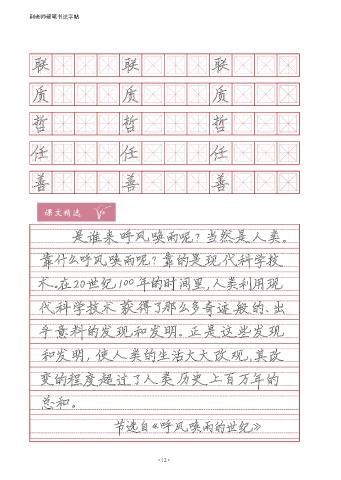 刘老师硬笔书法字帖
联 联 联
质 质 质
哲 哲 哲
任 任 任
善 善 善
课文精选
是谁来呼风唤雨呢？当然是人类。
靠什么呼风唤雨呢？靠的是现代科学技
术。在20世纪100年的时间里，人类利用现
代科学技术获得了那么多奇迹般的、出
乎意料的发现和发明。正是这些发现
和发明，使人类的生活大大改观，其改
变的程度超过了人类历史上百万年的
总和。
节选自《呼风唤雨的世纪》
·12·